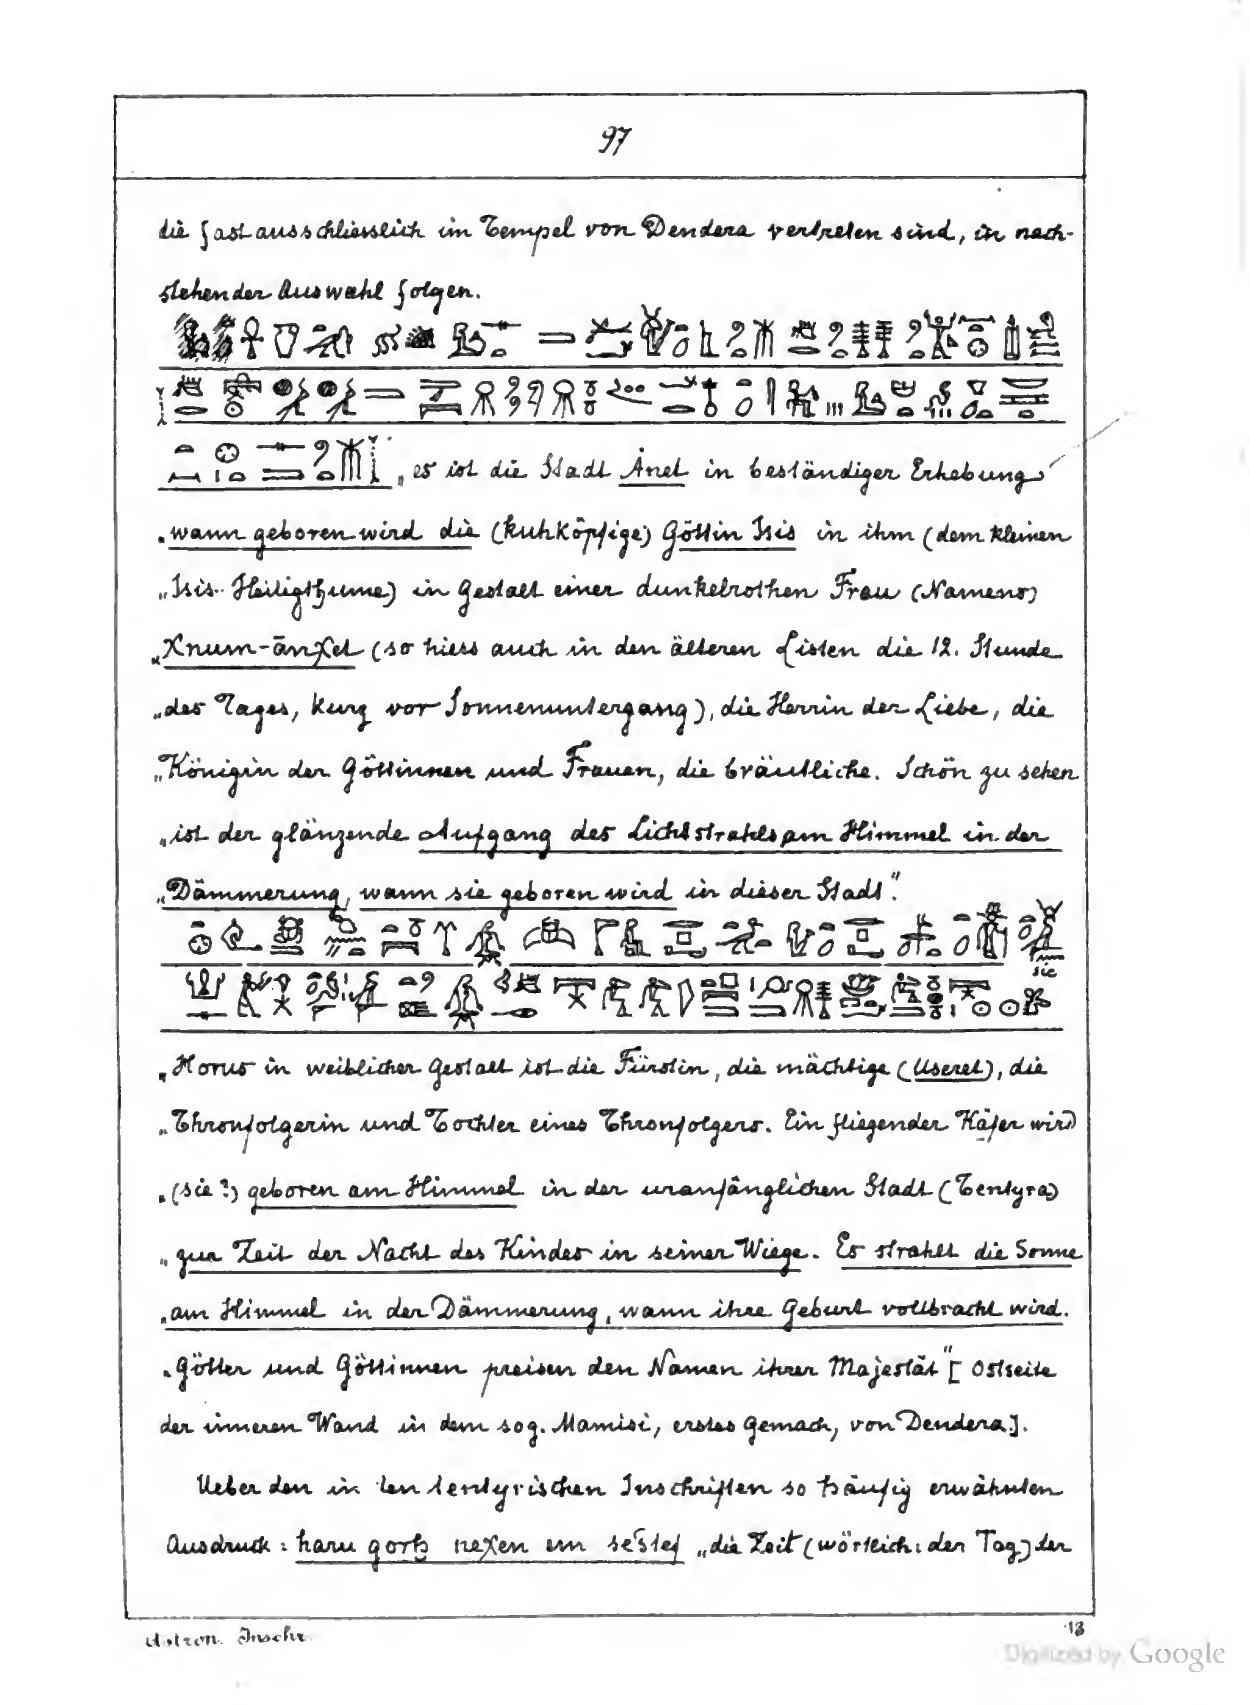 97
die fast ausschliesslich im Tempel von Dendera vertreten sind, in nach-
stehender Auswahl folgen.
„es ist die Stadt Ȧnet in beständiger Erhebung
„wann geboren wird die (kuhköpfige) Göttin Isis in ihm (dem kleinen
„Isis-Heiligthume) in Gestalt einer dunkelrothen Frau (Namens)
„Xnum-ānχet (so hiess auch in den älteren Listen die 12. Stunde
„des Tages, kurz vor Sonnenuntergang), die Herrin der Liebe, die
„Königin der Göttinnen und Frauen, die bräutliche. Schön zu sehen
„ist der glänzende Aufgang des Lichtstrahls am Himmel in der
„Dämmerung, wann sie geboren wird in dieser Stadt."
sie
„Horus in weiblicher Gestalt ist die Fürstin, die mächtige (Useret), die
„Thronfolgerin und Tochter eines Thronfolgers. Ein fliegender Käfer wird
„(sie?) geboren am Himmel in der uranfänglichen Stadt (Tentyra)
„zur Zeit der Nacht des Kindes in seiner Wiege. Es strahlt die Sonne
„am Himmel in der Dämmerung, wann ihre Geburt vollbracht wird.
„Götter und Göttinnen preisen den Namen ihrer Majestät" [Ostseite
der inneren Wand in dem sog. Mamisi, erstes Gemach, von Dendera].
Ueber den in den tentyrischen Inschriften so häufig erwähnten
Ausdruck: haru gorḥ neχen em seštef „die Zeit (wörtlich: der Tag) der
Astron. Inschr. 13
Digitized by Google